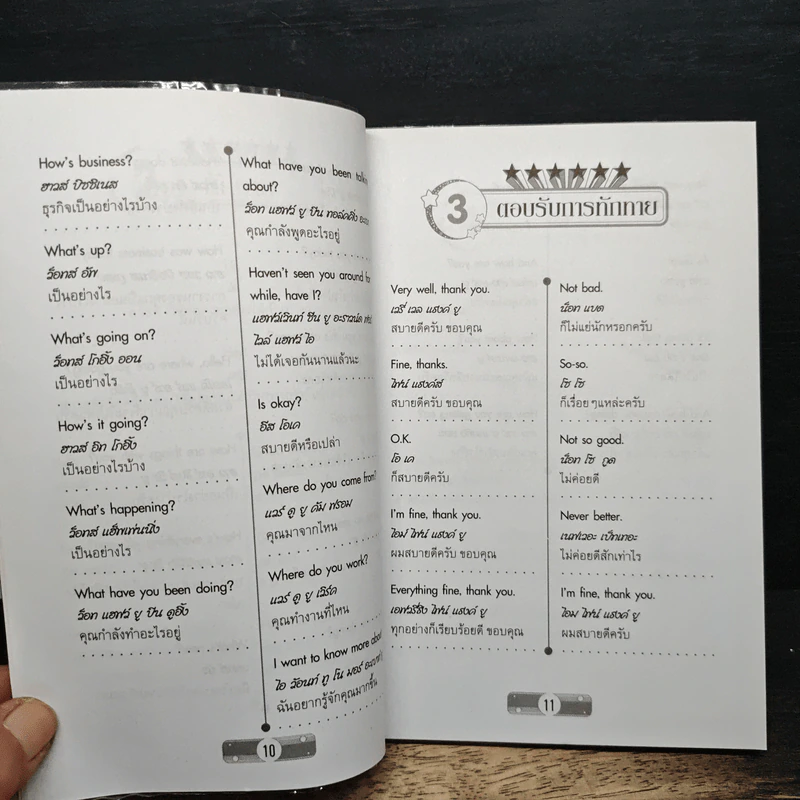 How's business?
ฮาวส์ บิซซิเนส
ธุรกิจเป็นอย่างไรบ้าง
What's up?
ว็อทส์ อัพ
เป็นอย่างไร
What's going on?
ว็อทส์ โกอิ้ง ออน
เป็นอย่างไร
How's it going?
ฮาวส์ อิท โกอิ้ง
เป็นอย่างไรบ้าง
What's happening?
ว็อทส์ แฮ็พเพ่นนิ่ง
เป็นอย่างไร
What have you been doing?
ว็อท แฮฟว์ ยู บีน ดูอิ้ง
คุณกำลังทำอะไรอยู่
What have you been
about?
ว็อท แฮฟว์ ยู บีน ทอล์คคิ่ง
คุณกำลังพูดอะไรอยู่
Haven't seen you around
while, have I?
แฮฟว์เว่นท์ ซีน ยู อะราวน์ด
ไวล์ แฮฟว์ ไอ
ไม่ได้เจอกันนานแล้วนะ
Is okay?
อีส โอเค
สบายดีหรือเปล่า
Where do you come from?
แวร์ ดู ยู คัม ฟรอม
คุณมาจากไหน
Where do you work?
แวร์ ดู ยู เวิร์ค
คุณทำงานที่ไหน
I want to know more about
ไอ ว้อนท์ ทู โน มอร์
ฉันอยากรู้จักคุณมากขึ้น
10
3 ตอบรับการทักทาย
Very well, thank you.
เวรี่ เวล แธงค์ ยู
สบายดีครับ ขอบคุณ
Fine, thanks.
ไฟน์ แธงค์ส์
สบายดีครับ ขอบคุณ
O.K.
โอ เค
ก็สบายดีครับ
I'm fine, thank you.
ไอม ไฟน์ แธงค์ ยู
ผมสบายดีครับ ขอบคุณ
Everything fine, thank you.
เอฟวรีธิง ไฟน์ แธงค์ ยู
ทุกอย่างก็เรียบร้อยดี ขอบคุณ
Not bad.
น็อท แบด
ก็ไม่แย่นักหรอกครับ
So-so.
โซ โซ
ก็เรื่อยๆแหล่ะครับ
Not so good.
น็อท โซ กูด
ไม่ค่อยดี
Never better.
เนฟเวอะ เบ็ทเทอะ
ไม่ค่อยดีสักเท่าไร
I'm fine, thank you.
ไอม ไฟน์ แธงค์ ยู
ผมสบายดีครับ
11